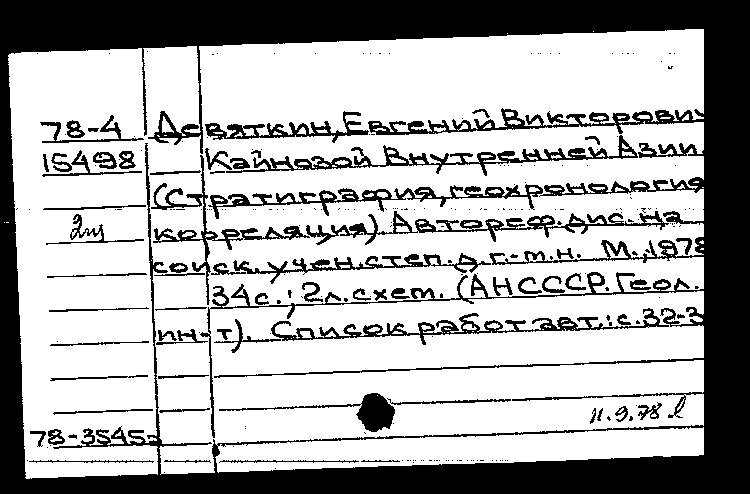 78-4 Девяткин, Евгений Викторович
15498 Кайнозой Внутренней Азии.
(Стратиграфия, геохронология
2 корреляция). Автореф. дис. на
соиск. учен. степ. д. г.-м. н. М., 1978
34 с.; 2 л. схем. (АН СССР. Геол.
ин-т). Список работ авт.: с. 32-3
11.9.78
78-3545